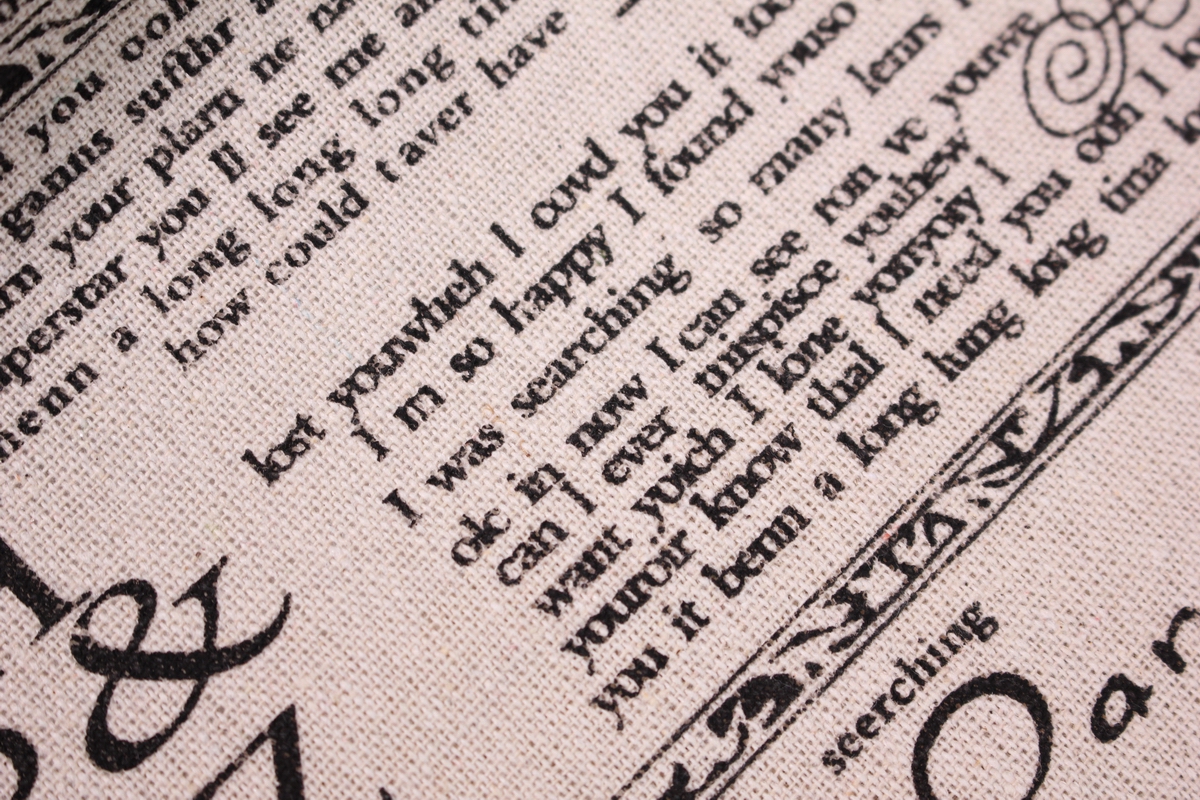 you ooh
ganns sufthr a
rn your plarn ne na
perstar you ll see me an
henn a long long long tin
how could t aver have
lost yoowhich I cowd you it too
I m so happy I found youso
I was searching so many lenrs
ok in now I can see rom ve youwe
can I ever puspisce youhew
want yoich I lone yorryoiy I
youroir know thal I need you ooh I
you it benn a long lung long tina
&
seerching
O a n